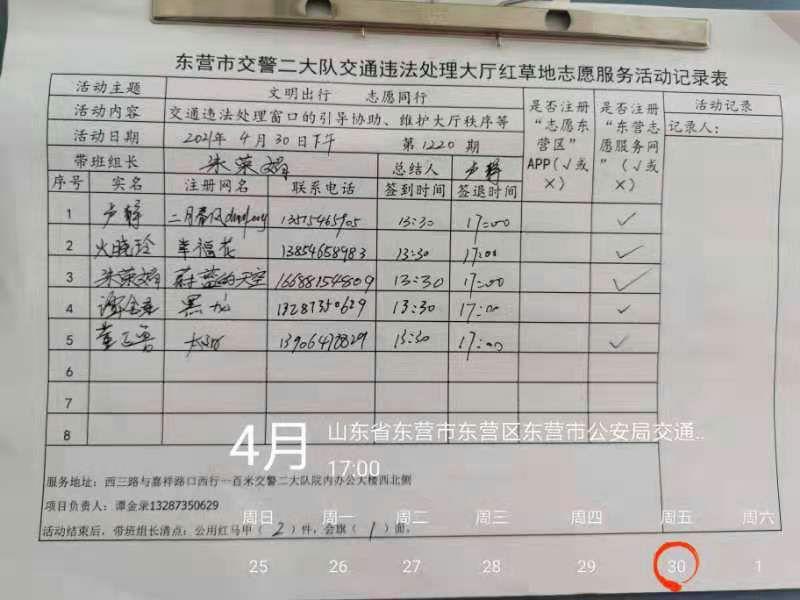 东营市交警二大队交通违法处理大厅红草地志愿服务活动记录表
活动主题 文明出行 志愿同行 是否注册“志愿东营区”APP(√或×) 是否注册“东营志愿服务网”(√或×) 活动记录
活动内容 交通违法处理窗口的引导协助、维护大厅秩序等 记录人：
活动日期 2021年4月30日下午 第1220期
带班组长 朱荣娟 总结人 卢静
序号 实名 注册网名 联系电话 签到时间 签退时间
1 卢静 二月春风 13515465905 13:30 17:00 √
2 火晓玲 幸福花 13854658983 13:30 17:00 √
3 朱荣娟 蔚蓝的天空 16688154809 13:30 17:00 √
4 谭金录 黑龙 13287350629 13:30 17:00 √
5 13906472829 13:30 17:00 √
6
7
8
4月 山东省东营市东营区东营市公安局交通..
17:00
服务地址：西三路与嘉祥路口西行一百米交警二大队院内办公大楼西北侧
项目负责人：谭金录13287350629
活动结束后，带班组长清点：公用红马甲（2）件，会旗（1）面，
周日 周一 周二 周三 周四 周五 周六
25 26 27 28 29 30 1